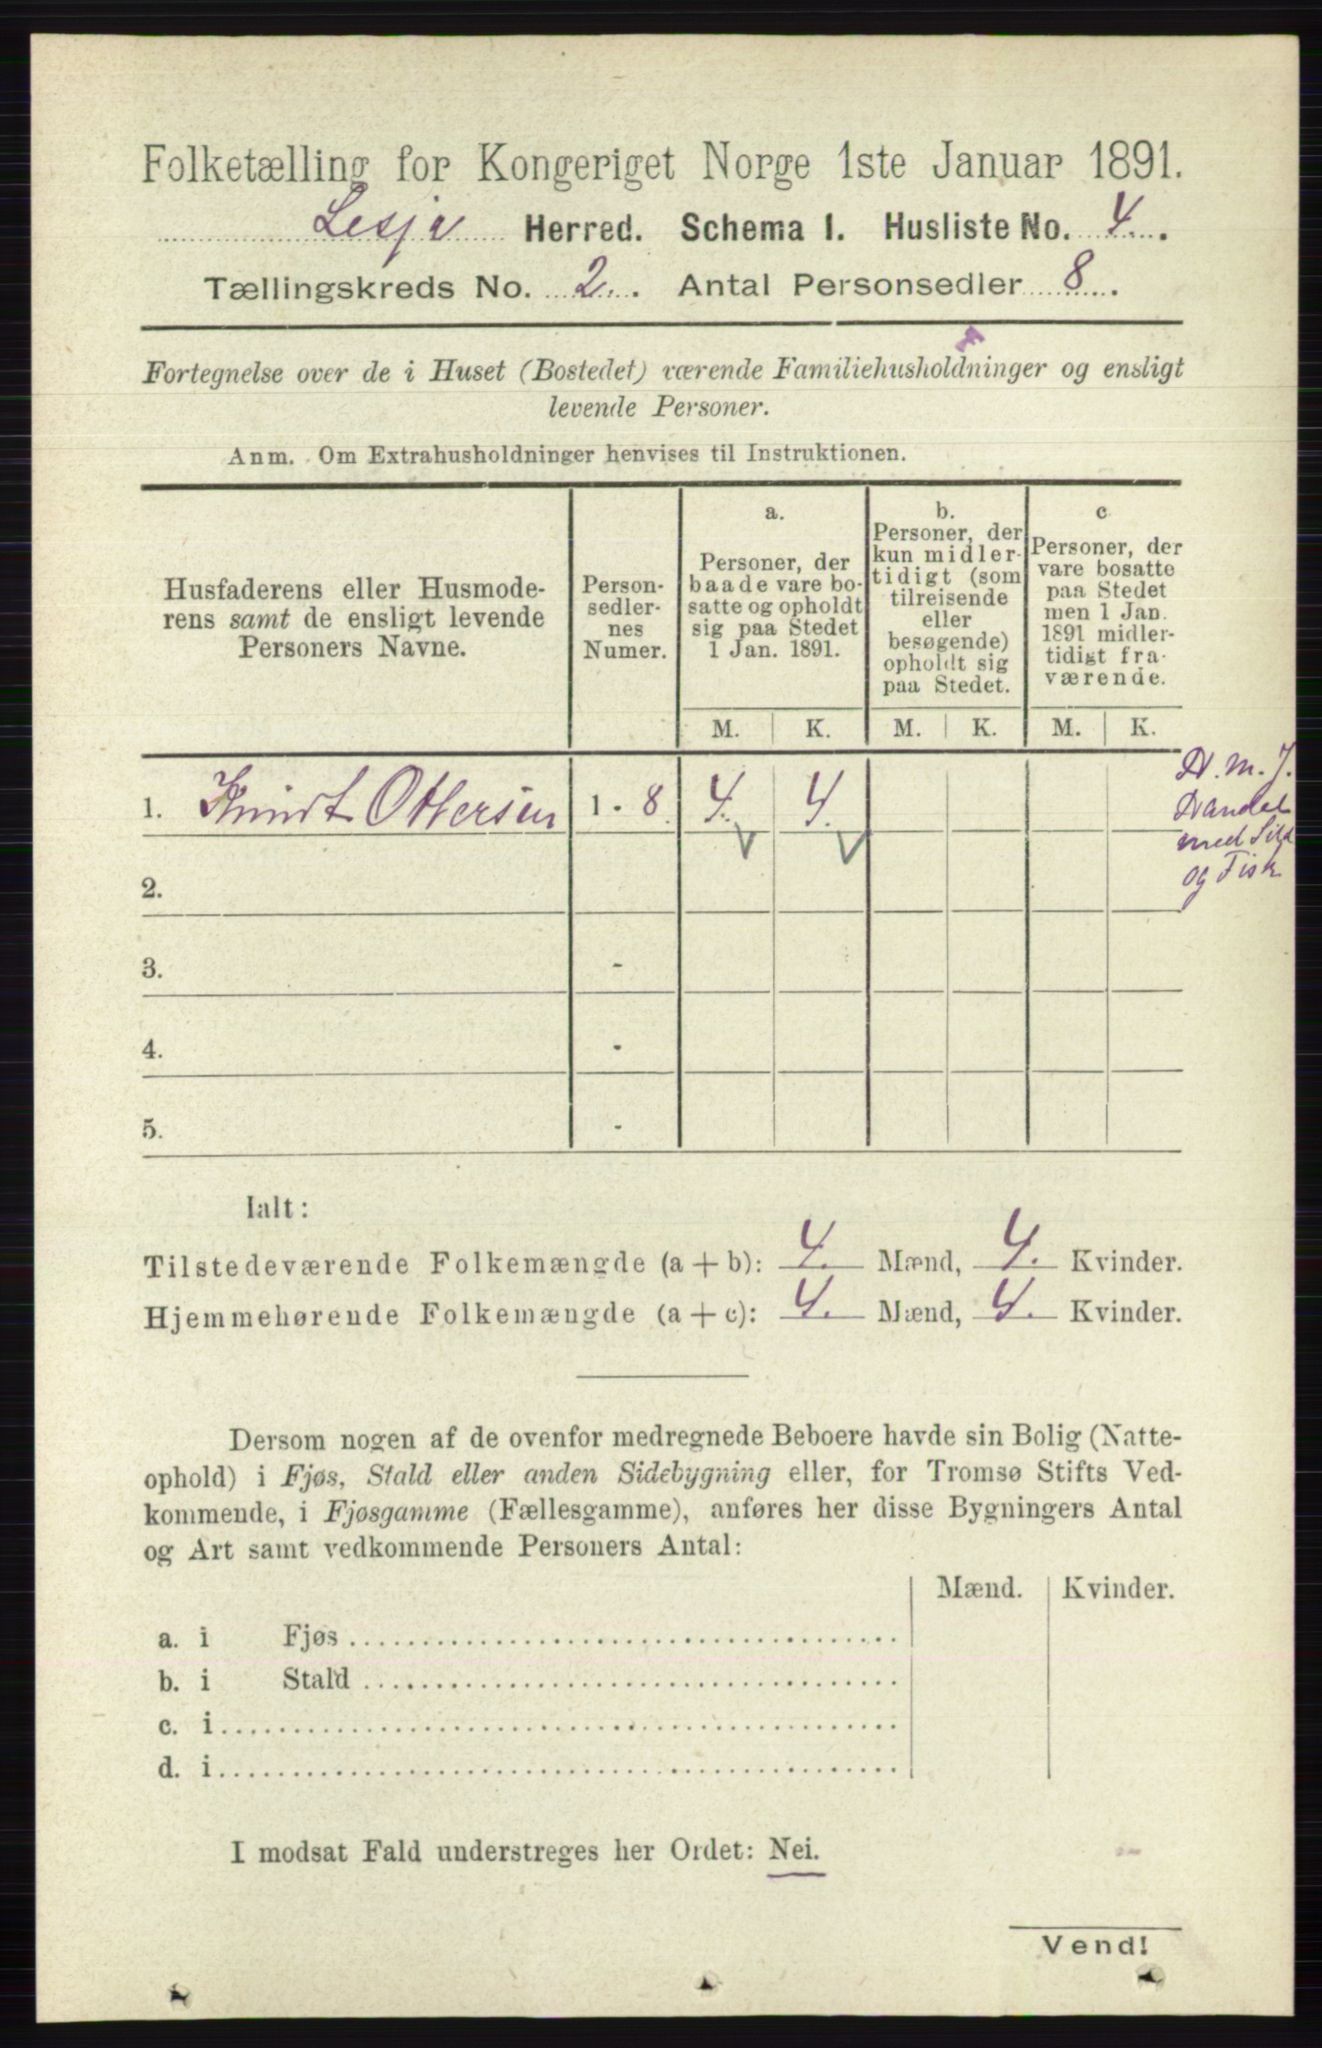 Folketælling for Kongeriget Norge 1ste Januar 1891.
Lesje Herred. Schema 1. Husliste No. 4.
Tællingskreds No. 2. Antal Personsedler 8.
F
Fortegnelse over de i Huset (Bostedet) værende Familiehusholdninger og ensligt
levende Personer.
Anm. Om Extrahusholdninger henvises til Instruktionen.
Husfaderens eller Husmode-
rens samt de ensligt levende
Personers Navne.
Person-
sedler-
nes
Numer.
a.
Personer, der
baade vare bo-
satte og opholdt
sig paa Stedet
1 Jan. 1891.
b.
Personer, der
kun midler-
tidigt (som
tilreisende
eller
besøgende)
opholdt sig
paa Stedet.
c
Personer, der
vare bosatte
paa Stedet
men 1 Jan.
1891 midler-
tidigt fra-
værende.
M. K. M. K. M. K.
1. Knudt Ottersen 1 - 8 4. 4.
H. m. J.
Handel
med Sild
og Fisk
2.
3. -
4. -
5. -
Ialt:
Tilstedeværende Folkemængde (a + b): 4. Mænd, 4. Kvinder.
Hjemmehørende Folkemængde (a + c): 4. Mænd, 4. Kvinder.
Dersom nogen af de ovenfor medregnede Beboere havde sin Bolig (Natte-
ophold) i Fjøs, Stald eller anden Sidebygning eller, for Tromsø Stifts Ved-
kommende, i Fjøsgamme (Fællesgamme), anføres her disse Bygningers Antal
og Art samt vedkommende Personers Antal:
Mænd. Kvinder.
a. i Fjøs
b. i Stald
c. i
d. i
I modsat Fald understreges her Ordet: Nei.
Vend!